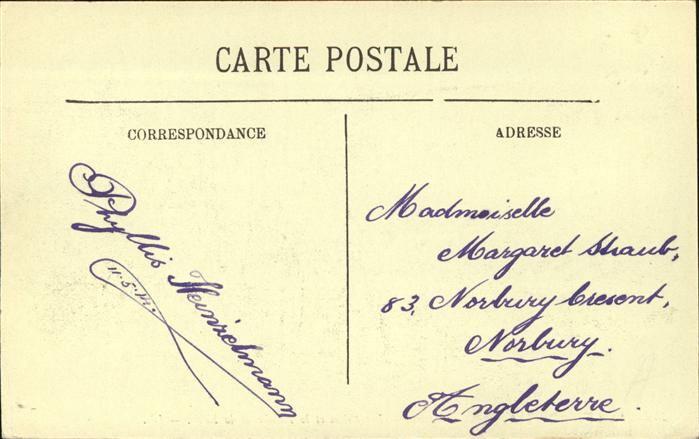 CARTE POSTALE
CORRESPONDANCE
ADRESSE
Phyllis Heinzelmann
11.5.14.
Madmoiselle
Margaret Straub,
83, Norbury Cresent,
Norbury.
Angleterre.